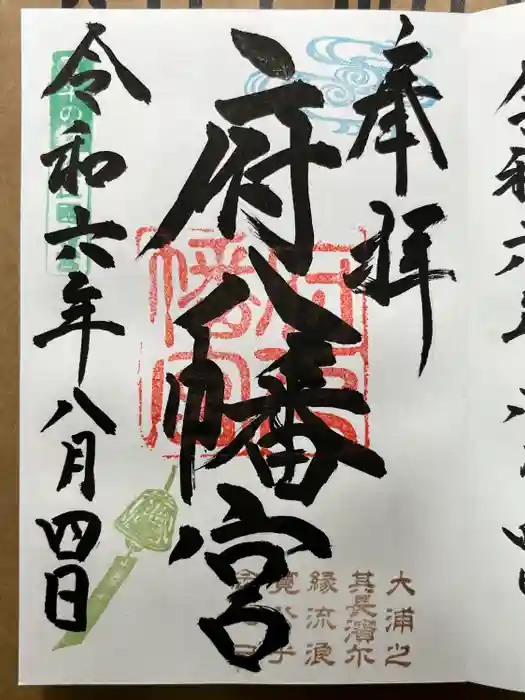 奉拝
府八幡宮
令和六年八月四日
大浦之
其長濱尓
縁流浪
寛公乎